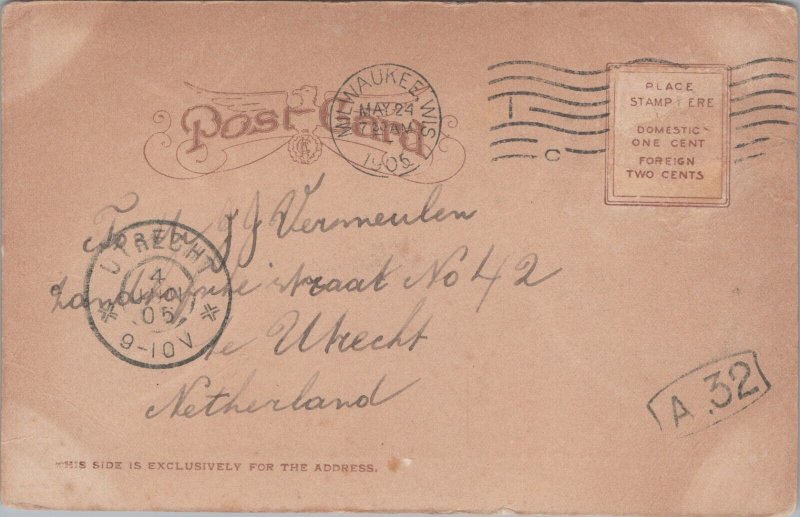 Post Card
MILWAUKEE, WIS.
MAY 24
AM
1905
PLACE
STAMP HERE
DOMESTIC
ONE CENT
FOREIGN
TWO CENTS
J J Vermeulen
straat No 42
te Utrecht
Netherland
UTRECHT
4
JUN
05
9-10V
A.32
THIS SIDE IS EXCLUSIVELY FOR THE ADDRESS.